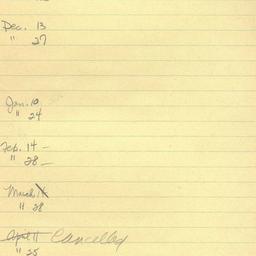 Dec. 13
" 27
Jan. 10
" 24
Feb. 14 -
" 28 -
March 14
" 28
April 11 Cancelled
" 25